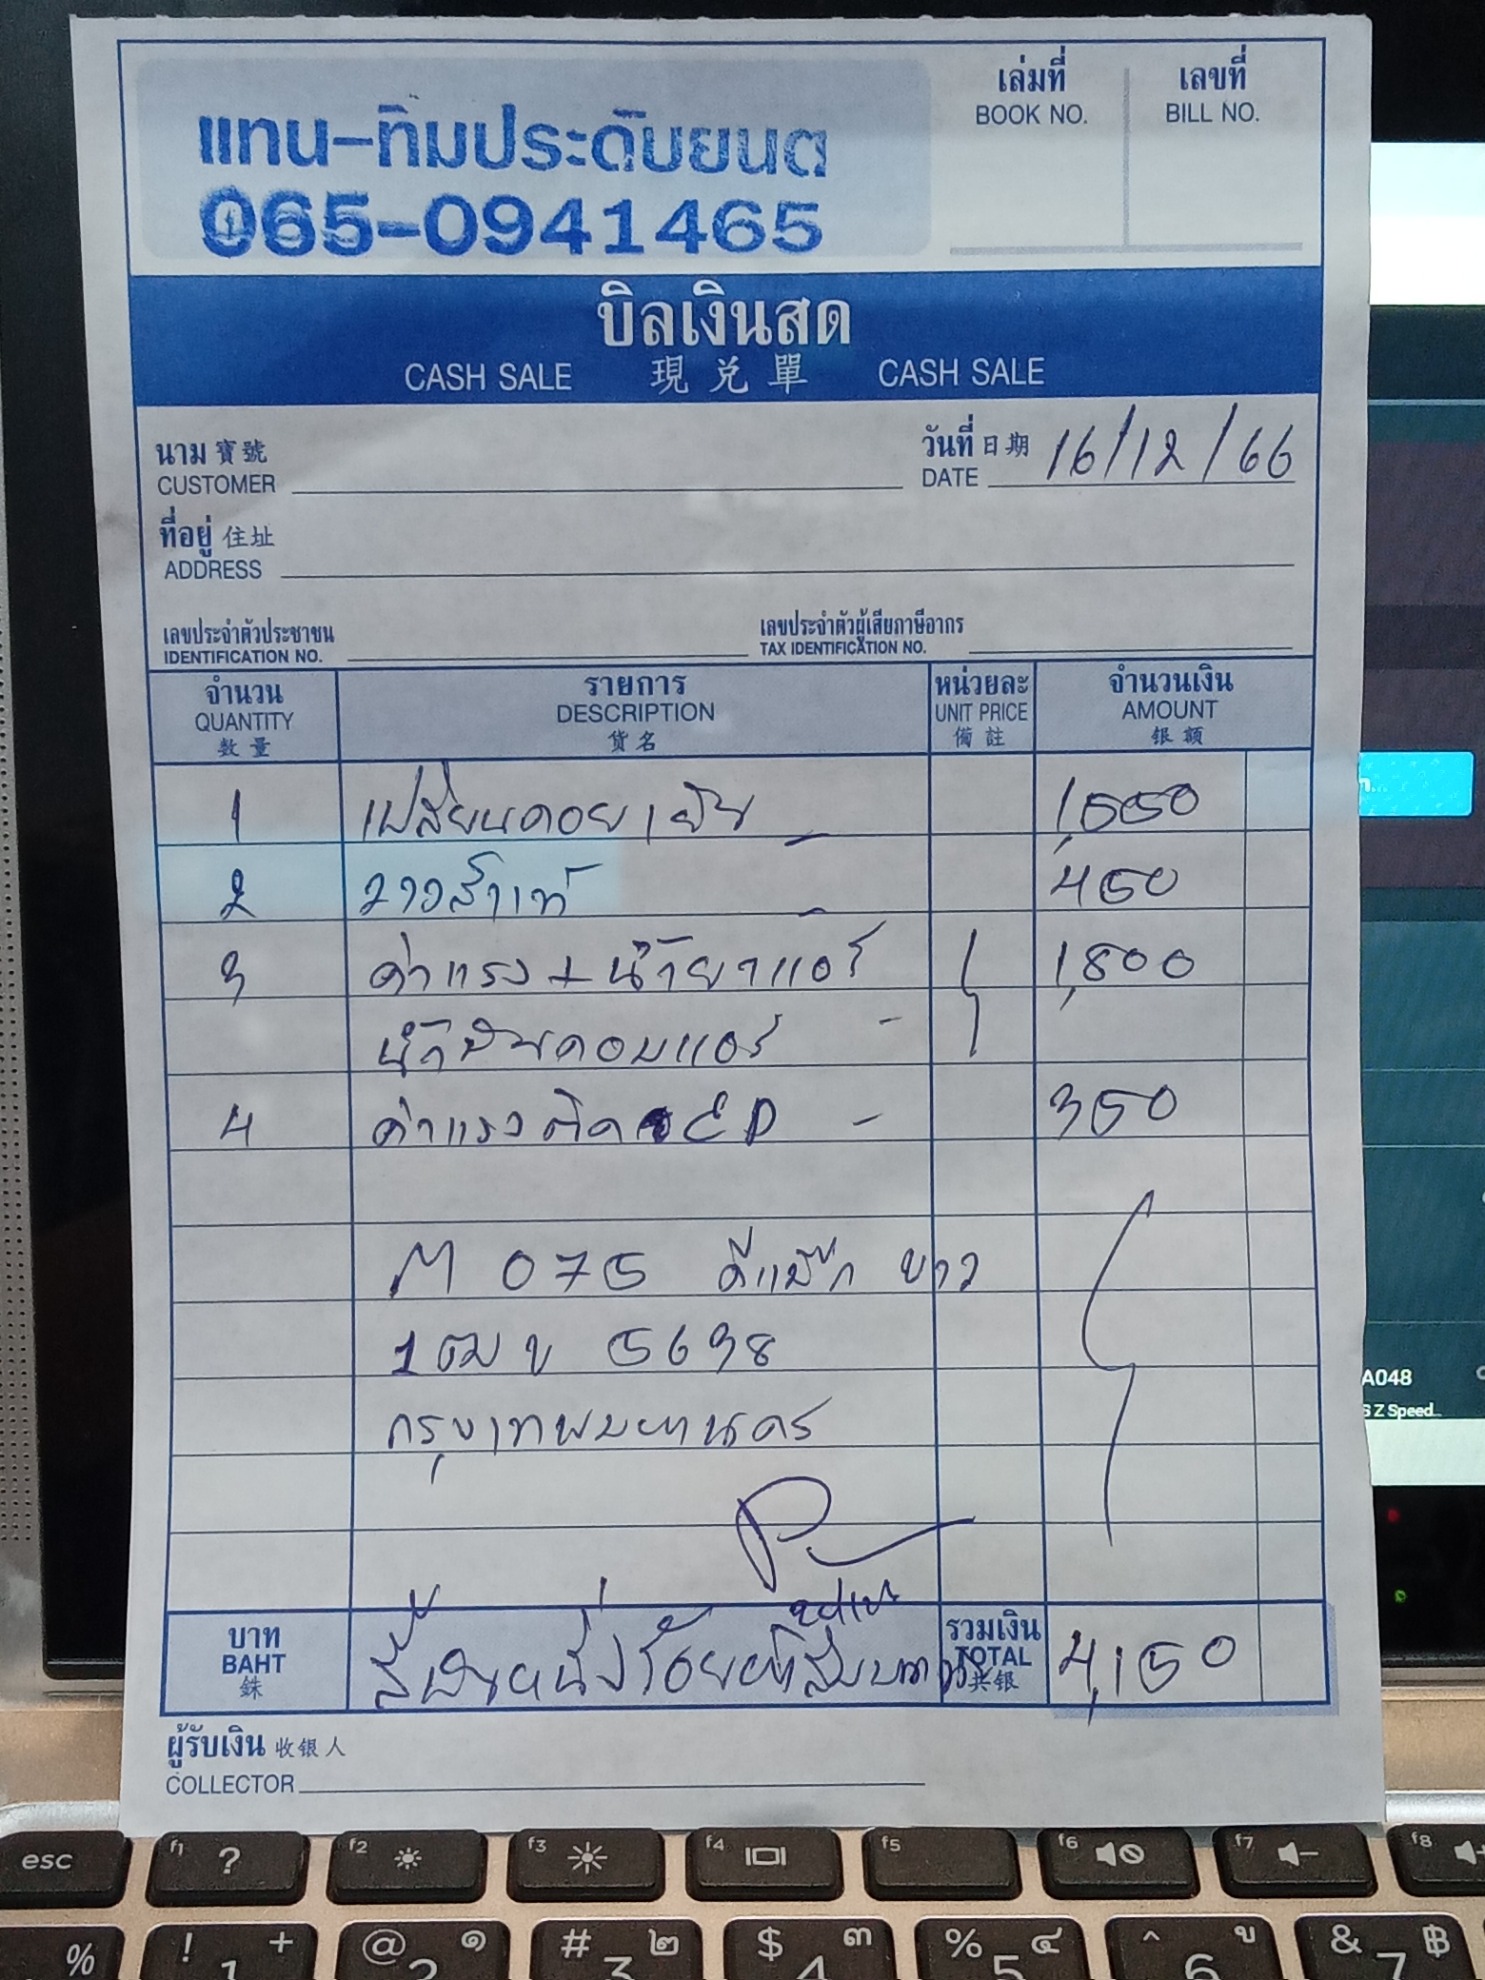 แทน-ทิมประดับยนต
065-0941465
เล่มที่ เลขที่
BOOK NO. BILL NO.
บิลเงินสด
CASH SALE 現兌單 CASH SALE
นาม 寶號 วันที่ 日期
CUSTOMER DATE 16/12/66
ที่อยู่ 住址
ADDRESS
เลขประจำตัวประชาชน เลขประจำตัวผู้เสียภาษีอากร
IDENTIFICATION NO. TAX IDENTIFICATION NO.
จำนวน รายการ หน่วยละ จำนวนเงิน
QUANTITY DESCRIPTION UNIT PRICE AMOUNT
數量 貨名 備註 银額
1 เปลี่ยนคอยเย็น 1,550
2 วาวล์แท้ 450
3 ค่าแรง + น้ำยาแอร์ 1,800
น้ำมันคอมแอร์
4 ค่าแรงติด LED 350
M 075 ดีแม๊ก ขาว
1ฒข 5638
กรุงเทพมหานคร
บาท สี่พันหนึ่งร้อยห้าสิบบาทถ้วน รวมเงิน 4,150
BAHT TOTAL
銖 共银
ผู้รับเงิน 收银人
COLLECTOR
A048
S Z Speed...
esc f1 ? f2 f3 f4 f5 f6 f7 f8
% ! + 1 @ ๑ 2 # ๒ 3 $ ๓ 4 % ๔ 5 ^ ข 6 & ฿ 7